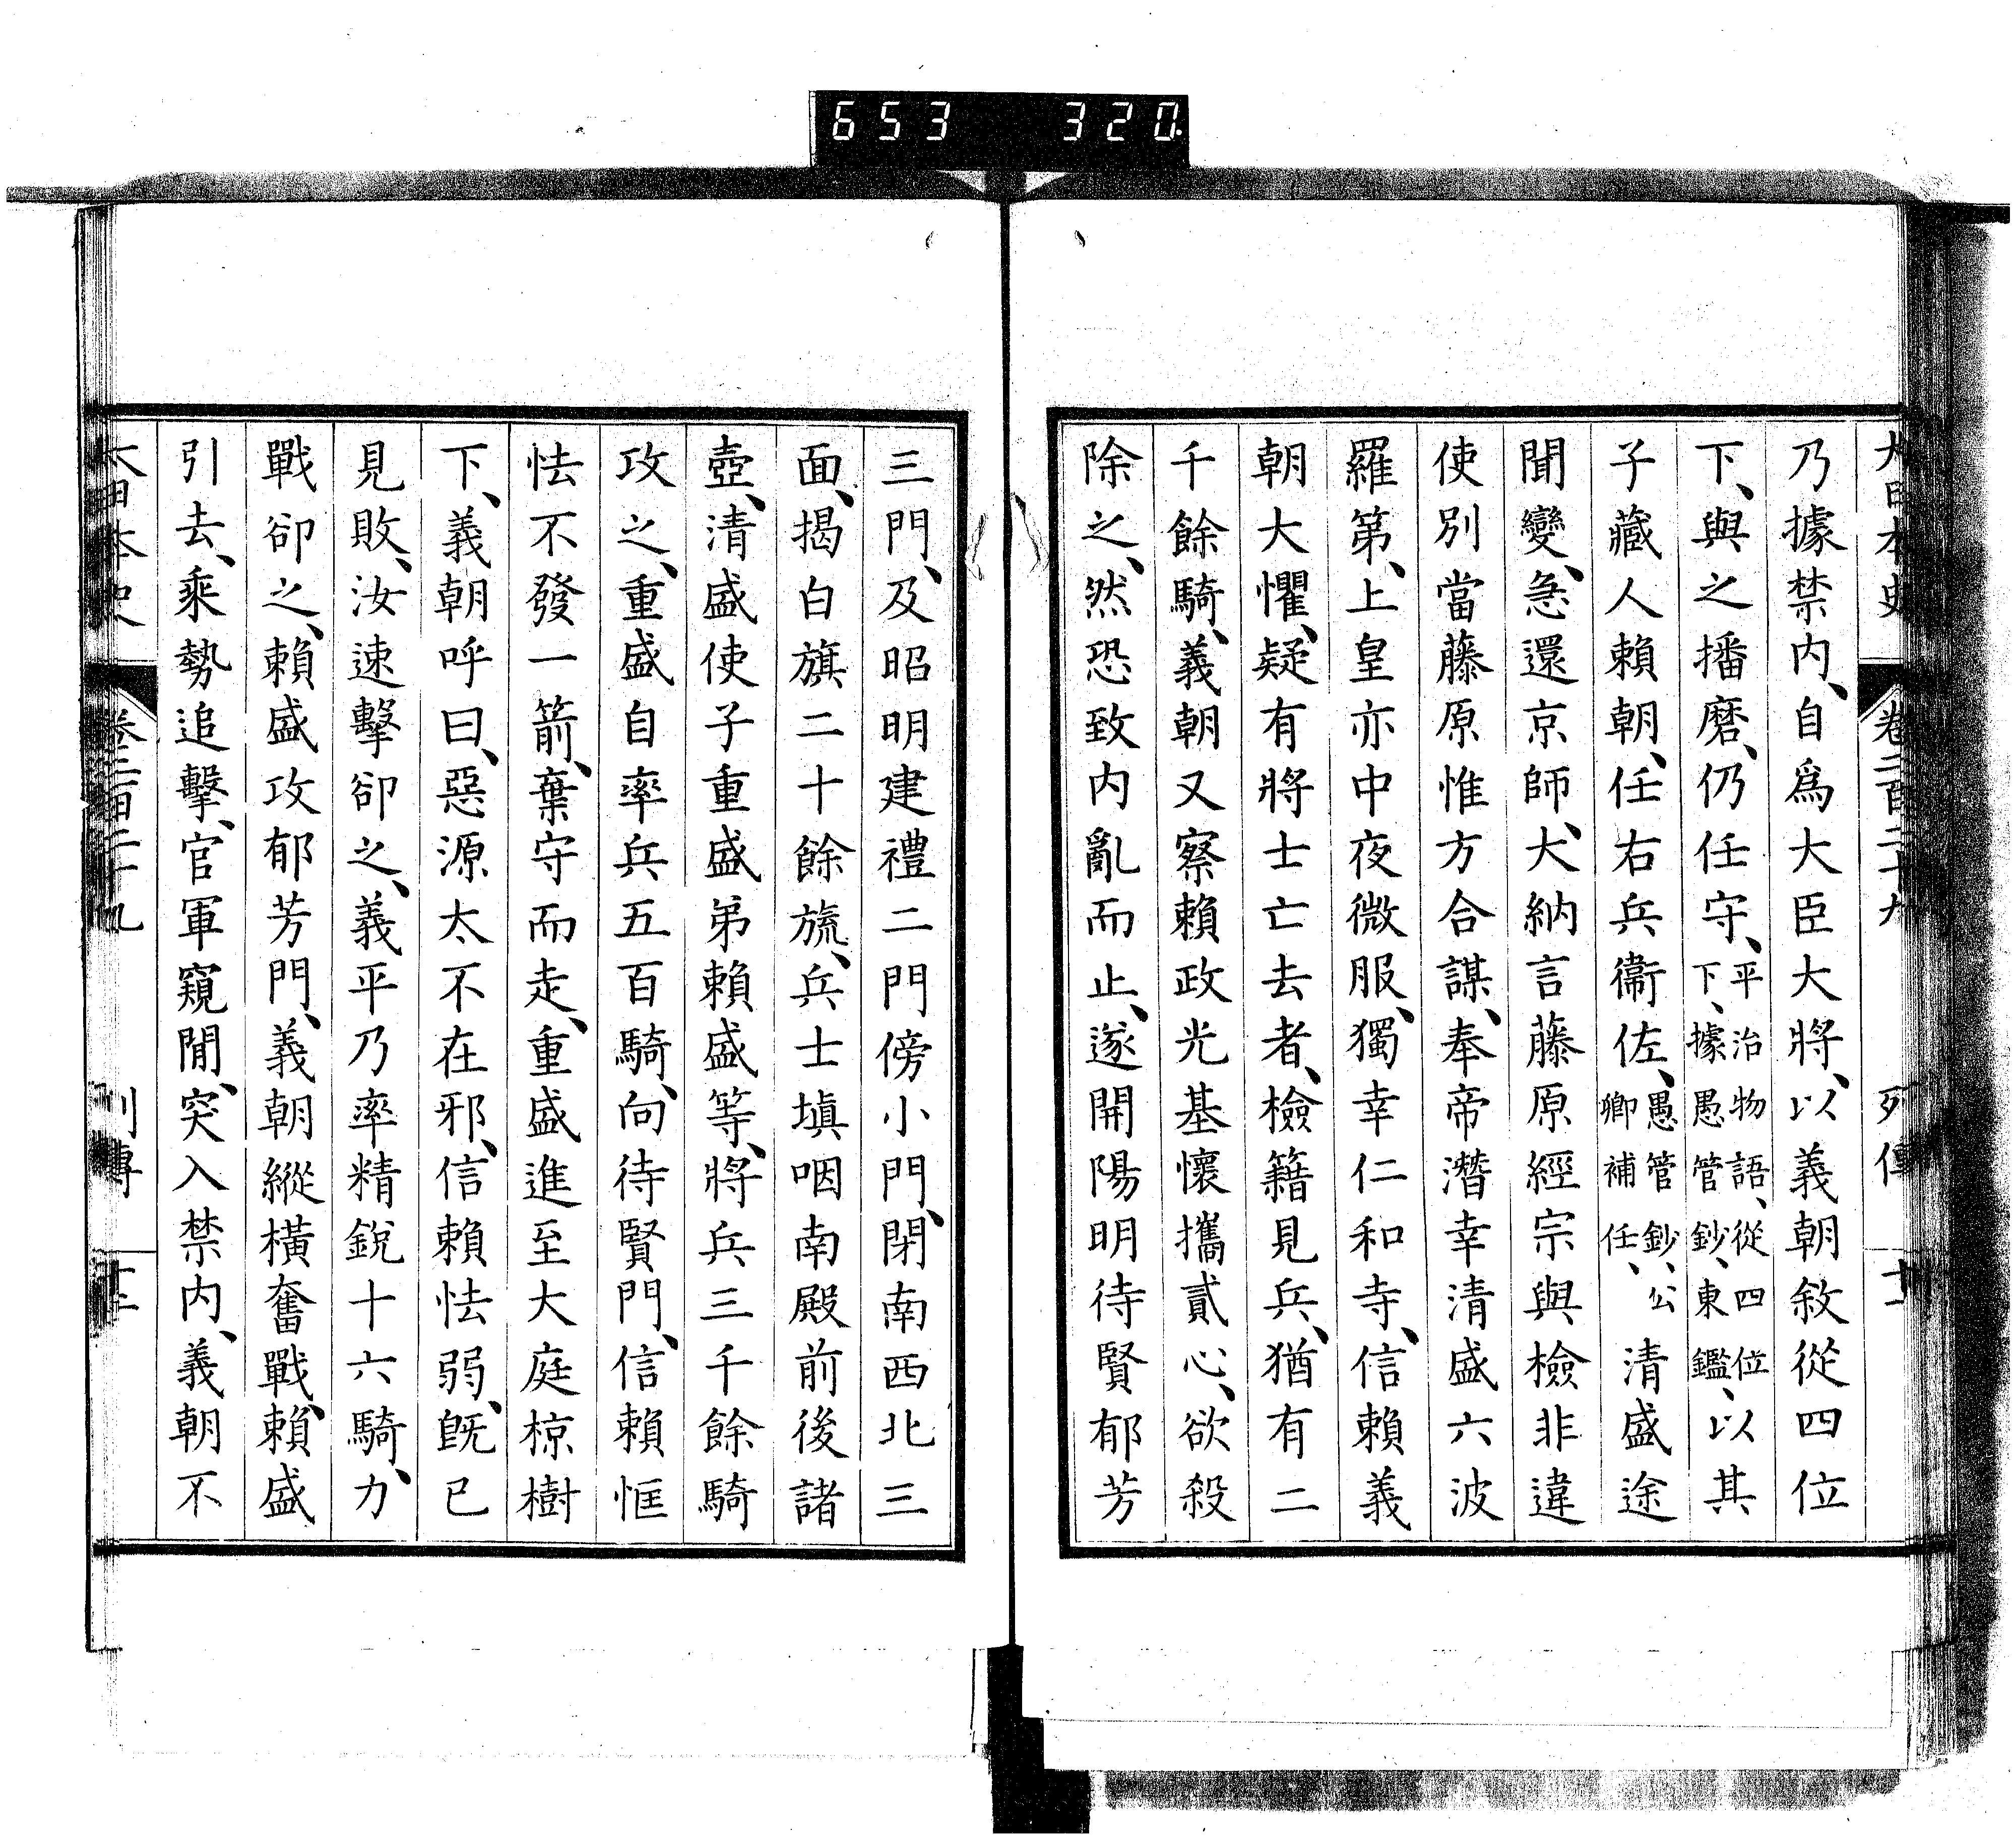 653 320
大日本史 卷二百二十九 列傳 十
乃據禁内、自爲大臣大將、以義朝敘從四位
下、與之播磨、仍任守、平治物語、從四位下、據愚管鈔、東鑑、以其
子藏人賴朝、任右兵衞佐、愚管鈔、公卿補任、清盛途
聞變、急還京師、大納言藤原經宗與檢非違
使別當藤原惟方合謀、奉帝潛幸清盛六波
羅第、上皇亦中夜微服、獨幸仁和寺、信賴義
朝大懼、疑有將士亡去者、檢籍見兵、猶有二
千餘騎、義朝又察賴政光基懷攜貳心、欲殺
除之、然恐致内亂而止、遂開陽明待賢郁芳
三門、及昭明建禮二門傍小門、閉南西北三
面、揭白旗二十餘旒、兵士塡咽南殿前後諸
壺、清盛使子重盛弟賴盛等、將兵三千餘騎
攻之、重盛自率兵五百騎、向待賢門、信賴恇
怯不發一箭、棄守而走、重盛進至大庭椋樹
下、義朝呼曰、惡源太不在邪、信賴怯弱、既已
見敗、汝速擊卻之、義平乃率精銳十六騎、力
戰卻之、賴盛攻郁芳門、義朝縱橫奮戰、賴盛
引去、乘勢追擊、官軍窺閒、突入禁内、義朝不
大日本史 卷二百二十九 列傳